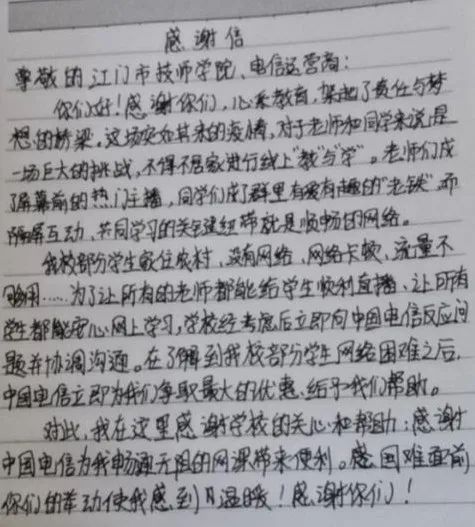 感谢信
尊敬的江门市技师学院、电信运营商：
你们好！感谢你们，心系教育，架起了责任与梦
想的桥梁，这场突如其来的疫情，对于老师和同学来说是
一场巨大的挑战，不得不居家进行线上“教”与“学”。老师们成
了屏幕前的热门主播，同学们成了群里有爱有趣的“老铁”，而
隔屏互动、共同学习的关键纽带就是顺畅的网络。
我校部分学生家住农村，没有网络、网络卡顿、流量不
够用……为了让所有的老师都能给学生顺利直播、让所有
学生都能安心网上学习，学校经考虑后立即向中国电信反应问
题并协调沟通。在了解到我校部分学生网络困难之后，
中国电信立即为我们争取最大的优惠，给予我们帮助。
对此，我在这里感谢学校的关心和帮助；感谢
中国电信为我畅通无阻的网课带来便利。感困难面前
你们的举动使我感到温暖！感谢你们！